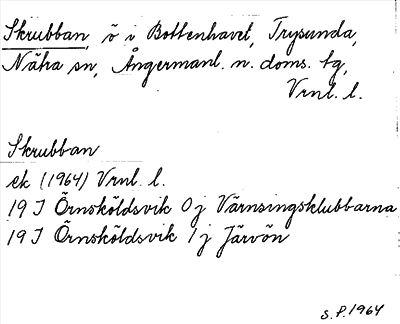 Skrubban, ö i Bottenhavet, Trysunda,
Nätra sn, Ångermanl. n. doms. tg,
Vrnl. l.
Skrubban
ek (1964) Vrnl. l.
19 J Örnsköldsvik 0 j Värnsingsklubbarna
19 J Örnsköldsvik 1 j Järvön
S.P. 1964